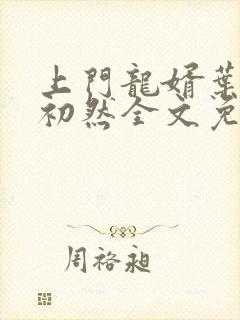 上門龍婿葉
初然全文免
周裕昶